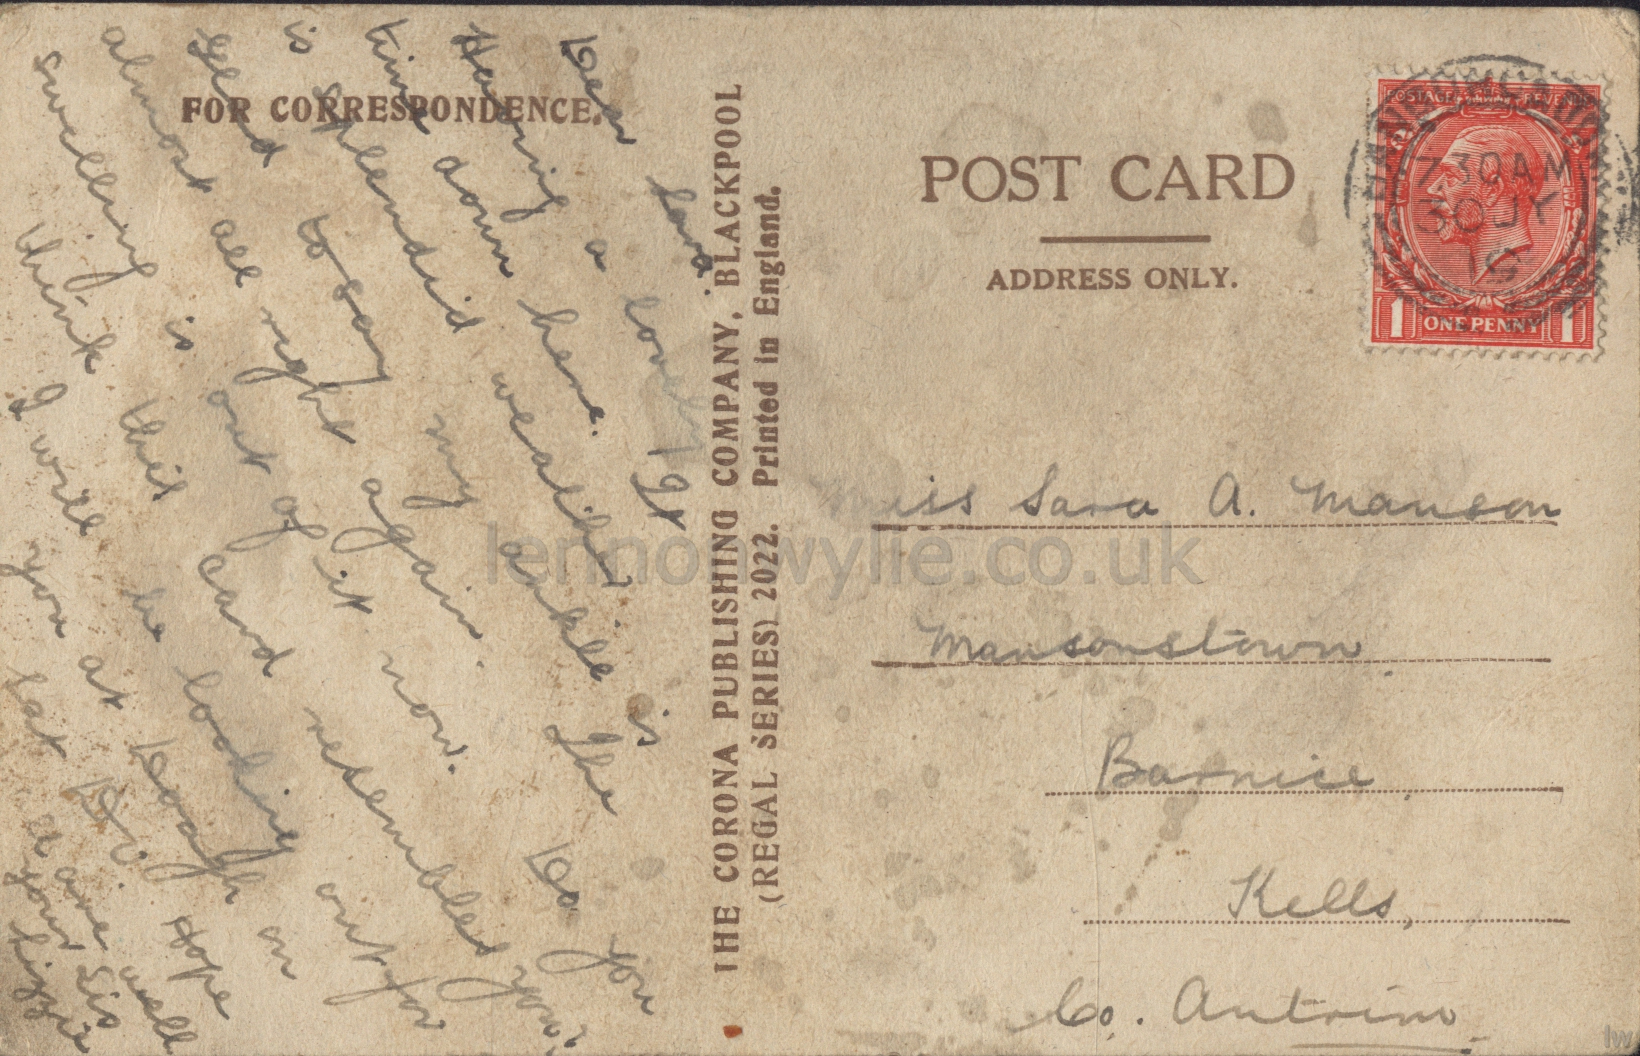 FOR CORRESPONDENCE.
Dear Sara.
Having a lovely
time down here. It
is splendid weather.
Glad to say my ankle is
almost all right again. The
swelling is out of it now. Do you
think this card resembles you.
I will be looking out for
you at on
Sat D.V. Hope
u are well
your Sis
Lizzie
THE CORONA PUBLISHING COMPANY, BLACKPOOL
(REGAL SERIES) 2022. Printed in England.
POST CARD
ADDRESS ONLY.
POSTAGE REVENUE
7 30AM
30 JY
1 ONE PENNY 1
Miss Sara A. Manson
Mansonstown
Barnice
Kells,
Co. Antrim
lennonwylie.co.uk
lw